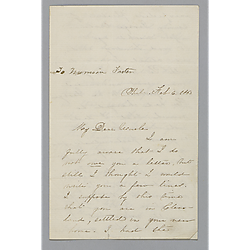 To Morrison Foster
Phil. Feb 6
My Dear
I am
fully aware that I do
not owe you a letter, but
still I thought I would
write you a few lines.
I suppose by this time
that you are in Cleve-
land, settled in your new
home. I had the